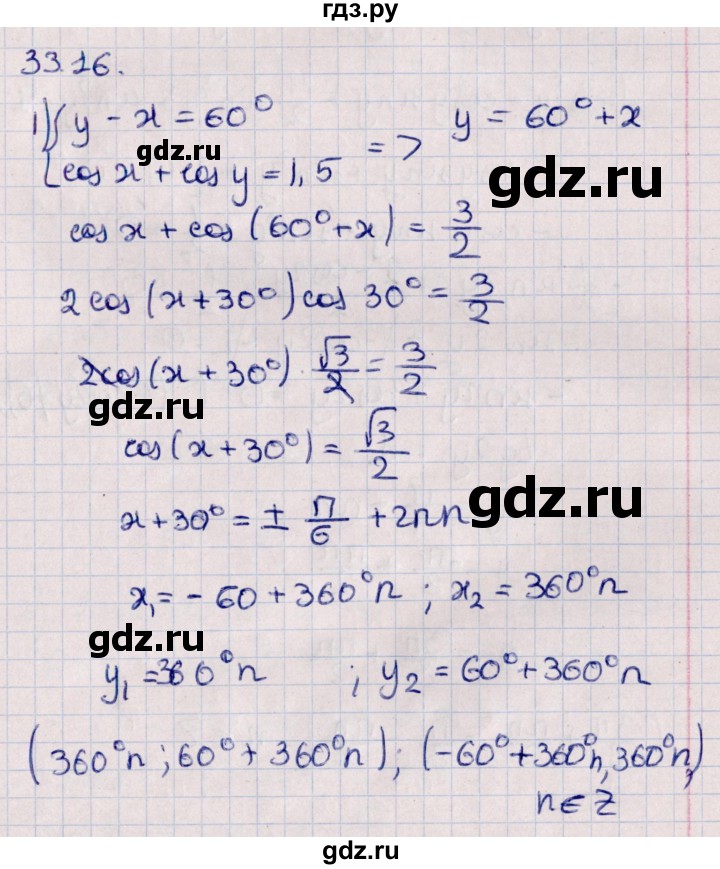 гдз.ру
33.16.
1) { y - x = 60° y = 60° + x
gdz.ru
{ cos x + cos y = 1,5 =>
gdz.ru
cos x + cos (60° + x) = 3/2
2 cos (x + 30°) cos 30° = 3/2
2cos (x + 30°) · √3/2 = 3/2
gdz.ru
cos (x + 30°) = √3/2
gdz.ru
x + 30° = ± П/6 + 2πn
x₁ = - 60 + 360°n ; x₂ = 360°n
gdz.ru
y₁ = 360°n ; y₂ = 60° + 360°n
(360°n ; 60° + 360°n) ; (-60° + 360°n, 360°n)
n ∈ Z
gdz.ru